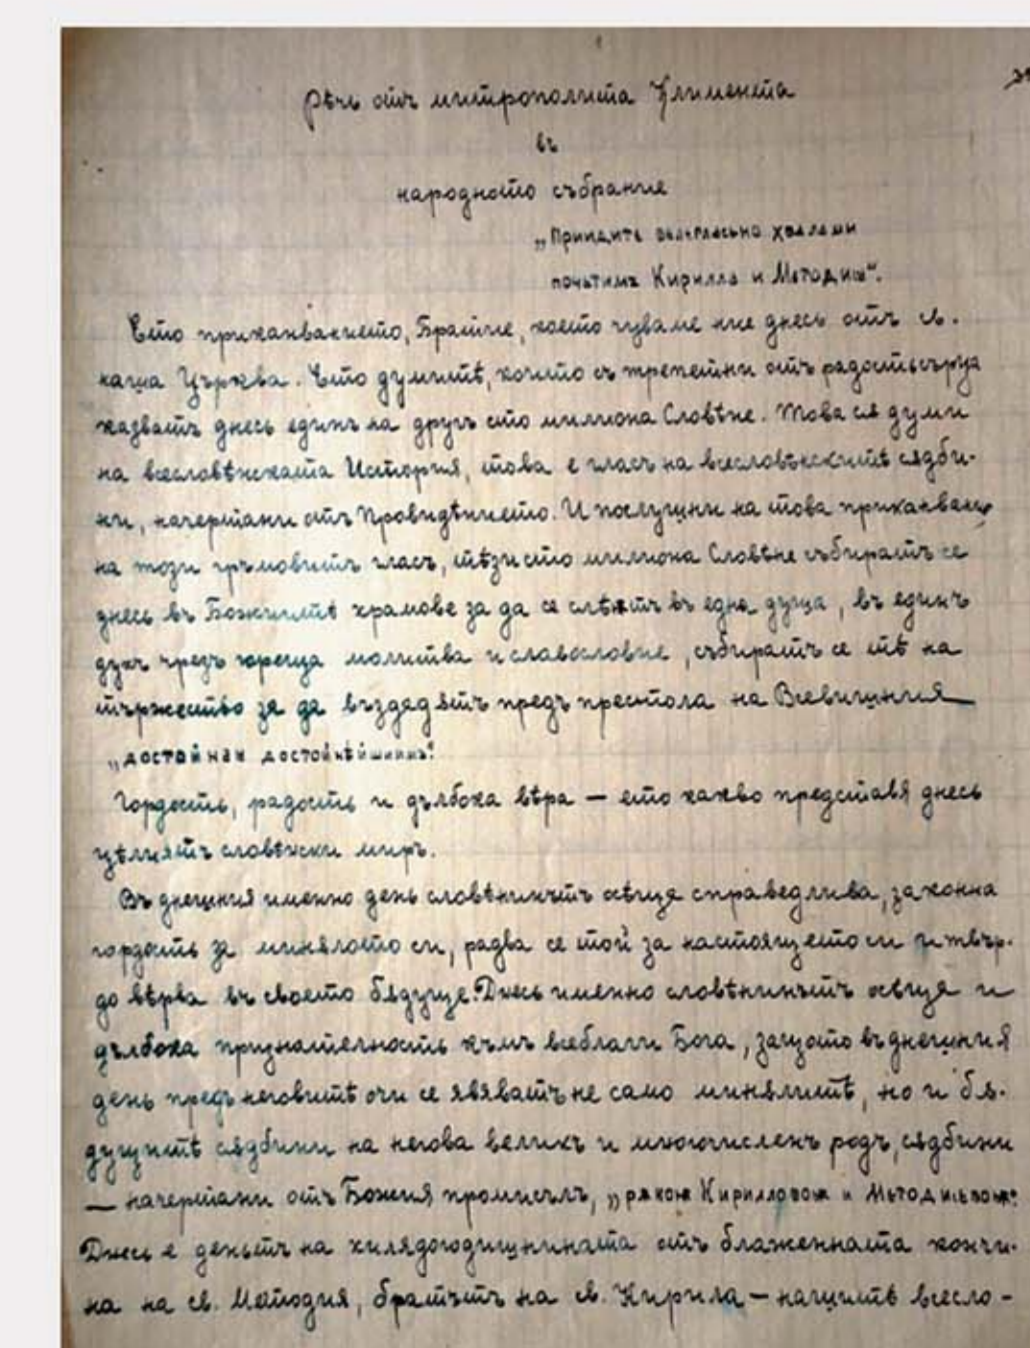 Рѣчь отъ митрополита Климента
въ
народното събрание
„Приидите велегласьно хвалами
почьтимъ Кирилла и Меѳодия“.
Ето приканванието, Братие, което чуваме ние днесь отъ св.
наша Църква. Ето думитѣ, които съ трепетни отъ радость сърца
казватъ днесь единъ на другъ сто милиона Словѣне. Това сѫ думи
на всесловѣнската История, това е гласъ на всесловѣнскитѣ сѫдби-
ни, начертани отъ Провидѣнието. И послушни на това приканвание,
на този гръмовитъ гласъ, тѣзи сто милиона Словѣне събиратъ се
днесь въ Божиитѣ храмове за да се слѣятъ въ една душа, въ единъ
духъ чрезъ гореща молитва и славословие, събиратъ се тѣ на
тържество за да въздадѫтъ предъ престола на Всевишния —
„достойная достойнѣйшимъ“.
Гордость, радость и дълбока вѣра — ето какво представя днесь
цѣлиятъ словѣнски миръ.
Въ днешния именно день словѣнинътъ осѣща справедлива, законна
гордость за миналото си, радва се той за настоящето си и твър-
до вѣрва въ своето бѫдуще. Днесь именно словѣнинътъ осѣща и
дълбока признателность къмъ всеблаги Бога, защото въ днешния
день предъ неговитѣ очи се явяватъ не само миналитѣ, но и бѫ-
дущитѣ сѫдбини на негова великъ и многочисленъ родъ, сѫдбини
— начертани отъ Божия промисълъ, „рѫкою Кирилловою и Меѳодиевою“.
Днесь е деньтъ на хилядогодишнината отъ блаженната кончи-
на на св. Методия, братътъ на св. Кирила — нашитѣ всесло-